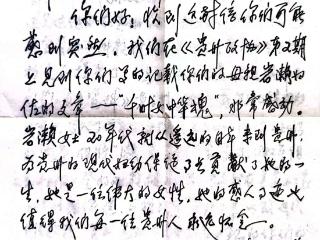 你们好：收到这封信你们可能
感到突然，我们在《贵州政协》第2期
上见到你们写的记载你们的母亲岩濑妇
佐的文章——"千叶女中华魂"，非常感动。
岩濑女士20年代就从遥远的日本来到贵州，
为贵州的现代妇幼保健事业贡献了她的一
生，她是一位伟大的女性，她的感人事迹
值得我们每一位贵州人永远怀念。